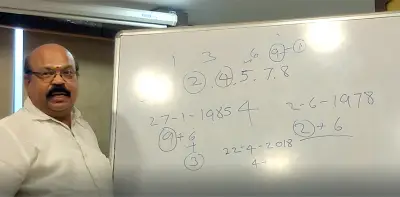 1 3 6 9-1
2, 4, 5, 7, 8
27-1-1985 4
2-6-1978
9 + 6
2 + 6
3
22-4-2018
4-